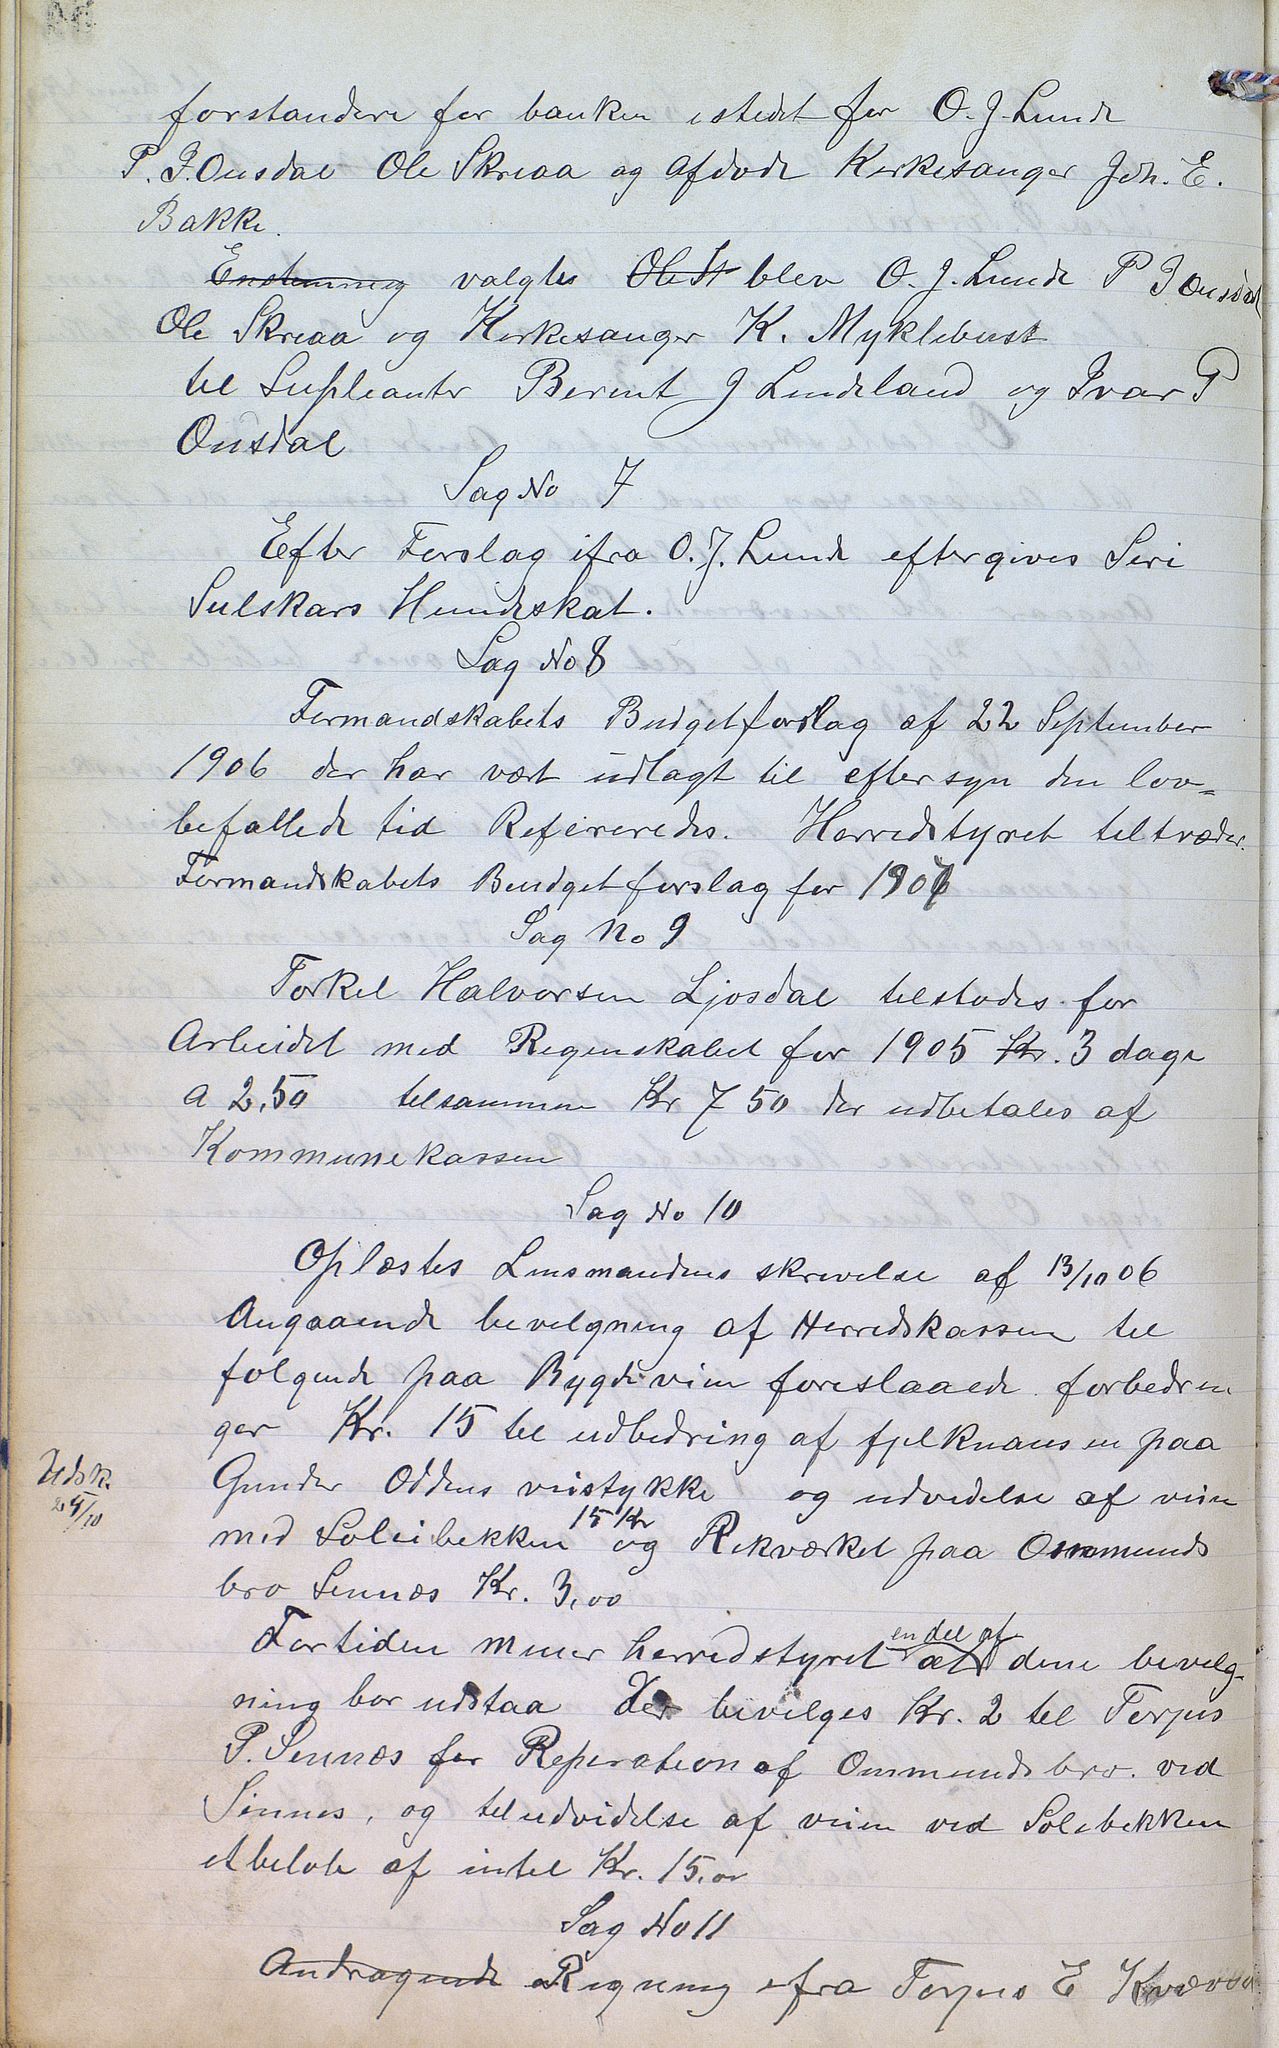 forstandere for banken istedet for O. J. Lunde
P. I. Ousdal Ole Skreaa og afdøde Kirkesanger Joh. E.
Bakke.
Enstemmig valgtes Ole St blev O. J. Lunde P I Ousdal
Ole Skreaa og Kirkesanger K. Myklebust
til Supleanter Berent J Lindeland og Ivar P
Ousdal
Sag No 7
Efter Forslag ifra O. J. Lunde eftergives Siri
Sulskars Hundeskat.
Sag No 8
Formandskabets Budgetforslag af 22 September
1906 der har vært udlagt til eftersyn den lov-
befallede tid Refereredes. Herredstyret tiltræder
Formandskabets Budgetforslag for 1907
Sag No 9
Torkel Halvorsen Ljosdal tilstodes for
Arbeidet med Regenskabet for 1905 Kr. 3 dage
a 2,50 tilsammen Kr 7 50 der udbetales af
Kommunekassen
Sag No 10
Oplæstes Lensmandens skrivelse af 13/10 06
Angaaende bevilgning af Herredskassen til
følgende paa Bygdeveien foreslaaede forbedrin
ger Kr. 15 til udbedring af fjelknausen paa
Gunder Oddens veistykke og udvidelse af veien
Udsk.
24/10
med Soleibekken 15 Kr og Rekværket paa Ommunds
bro Sinnæs Kr. 3,00
Fortiden mener herredstyret at en del af dene bevilg-
ning bør udstaa Der bevilges Kr. 2 til Torjus
P. Sinnæs for Reperation af Ommundsbro ved
Sinnes, og til udvidelse af veien ved Solebekken
et beløb af intil Kr. 15,00
Sag No 11
Andragende Regning ifra Torjus E